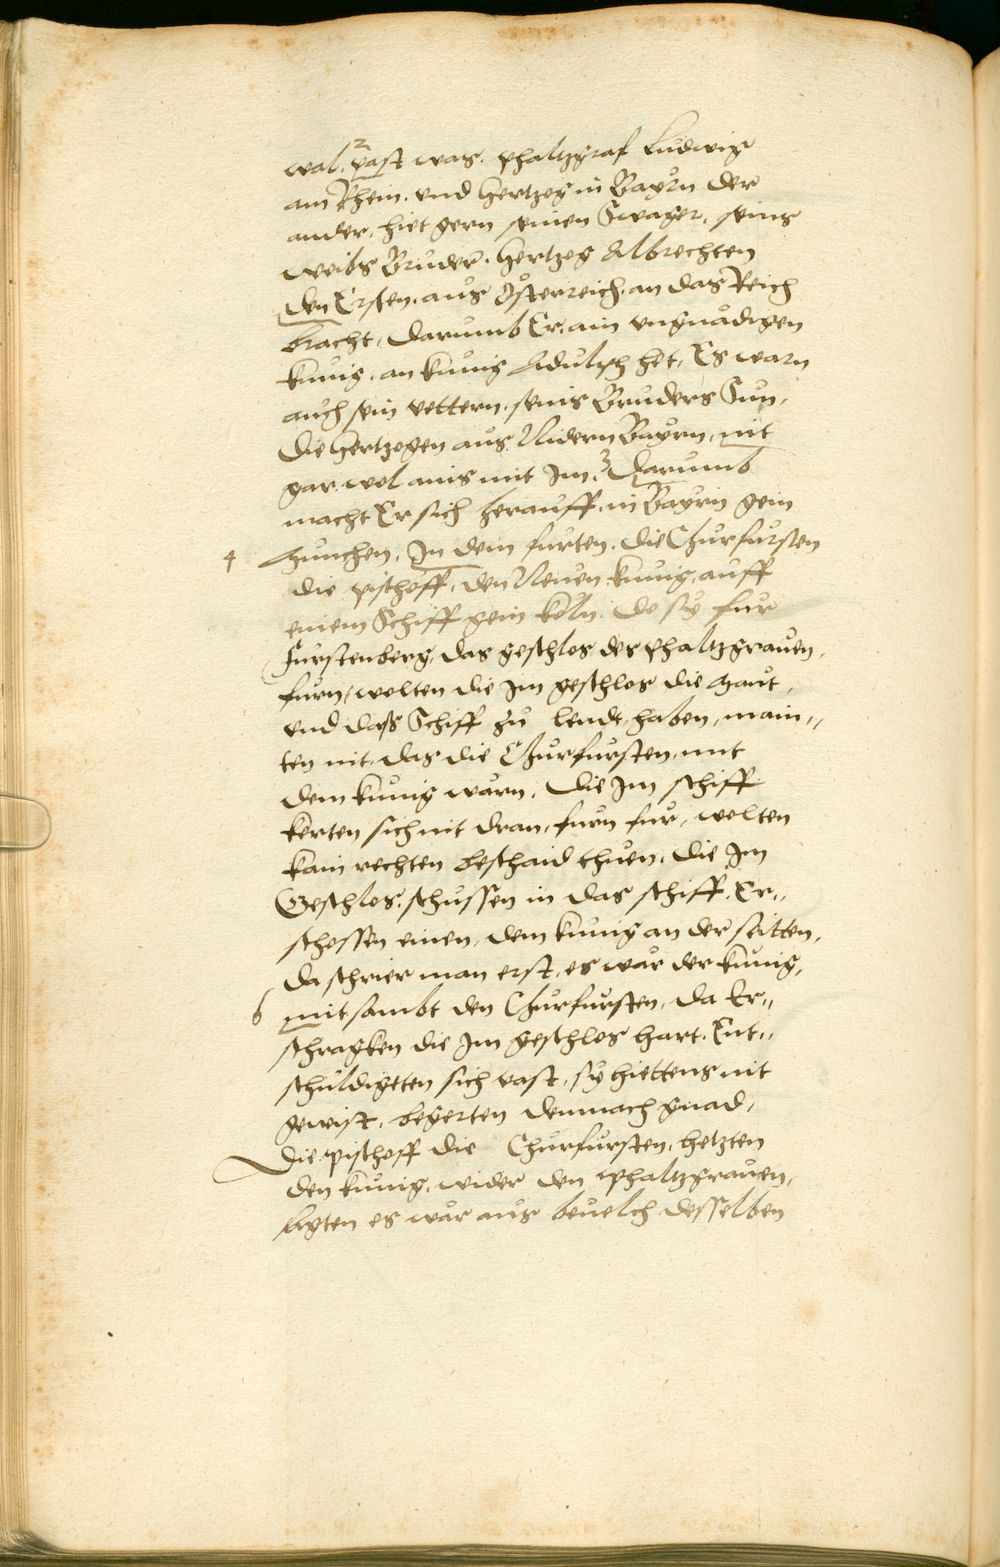 wal. 2 Past was. Phaltzgraf Ludwig
am Rhein. vnd Hertzog in Bayrn der
ander, hiet gern seinen Swager, seins
weibs Bruder. Hertzog Albrechten
den Ersten. aus Österreich. an das Reich
bracht, darumb Er. ain vngnädigen
kunig. an kunig Adulph het, Es warn
auch sein vettern. seins Bruders Sun,
die Hertzogen aus Nidern Bayrn, nit
gar wol ains mit Im. 3 Darumb
macht Er sich herauff. in Bayrn gein
4 Munchen. In dem furten. die Churfursten
die pischoff, den Neuen kunig, auff
einem Schiff gein köln. do sy fur
Furstenberg, das geschlos des Phaltzgrauen,
furn, wolten die Im geschlos die Maut,
vnd dass Schiff zu lendt haben, main,,
ten nit, das die Churfursten, mit
dem kunig wärn. die Im schiff
kerten sich nit dran, furn fur, wolten
kain rechten beschaid thuen, die Im
Geschlos, schussen in das schiff, Er,,
schossen einen, dem kunig an der seitten,
da schrier man erst, es wär der kunig,
6 mitsambt den Churfursten, da Er,,
schragken die Im geschlos hart. Ent,,
schuldigeten sich vast, sy hiettens nit
gewist, begerten dennnach gnad,
Die pischoff die Churfursten, hetzten
den kunig, wider den Phaltzgrauen,
legten es wär aus beuelch desselben